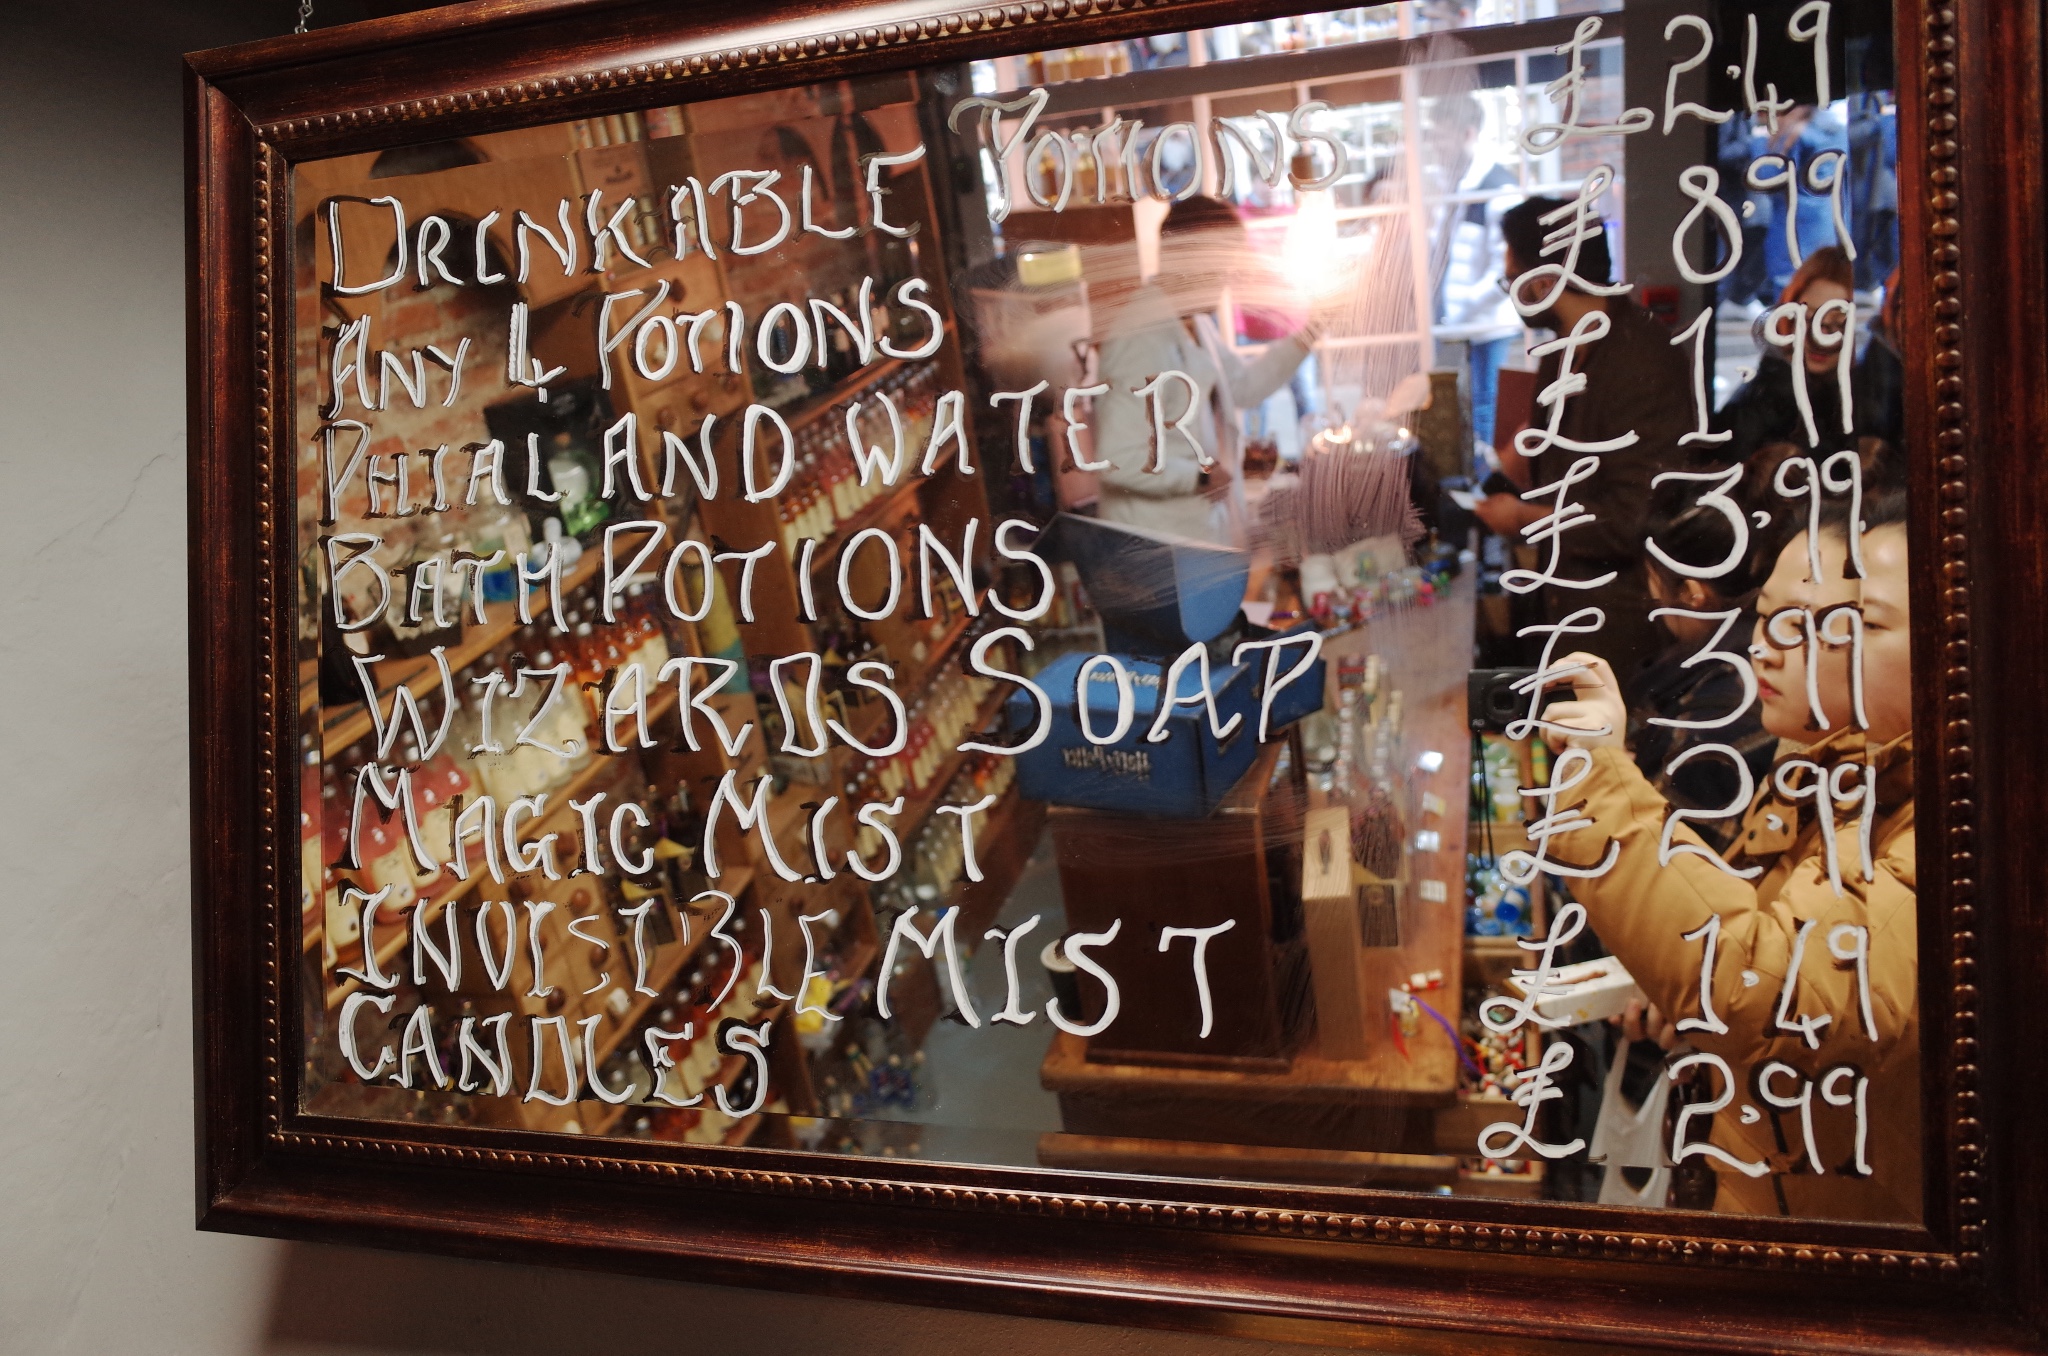 DRINKABLE POTIONS £2.49
ANY 4 POTIONS £8.99
PHIAL AND WATER £1.99
BATH POTIONS £3.99
WIZARDS SOAP £3.99
MAGIC MIST £2.99
INVISIBLE MIST £1.49
CANDLES £2.99